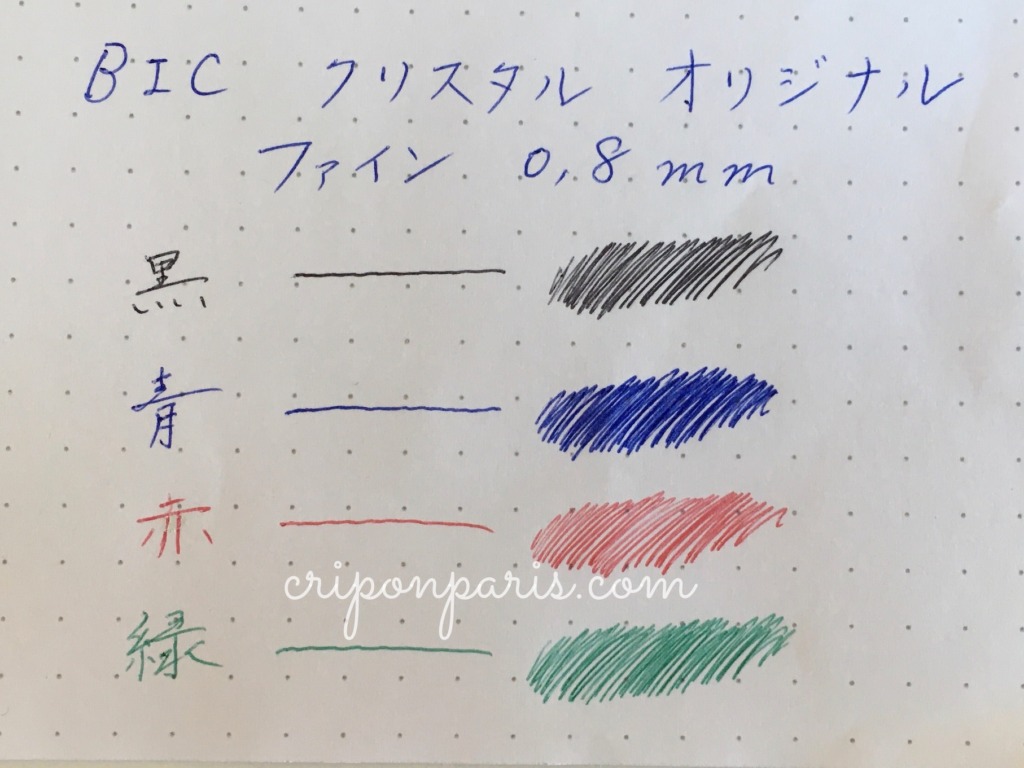 BIC クリスタル オリジナル
ファイン 0,8 mm
黒
青
赤
criponparis.com
緑